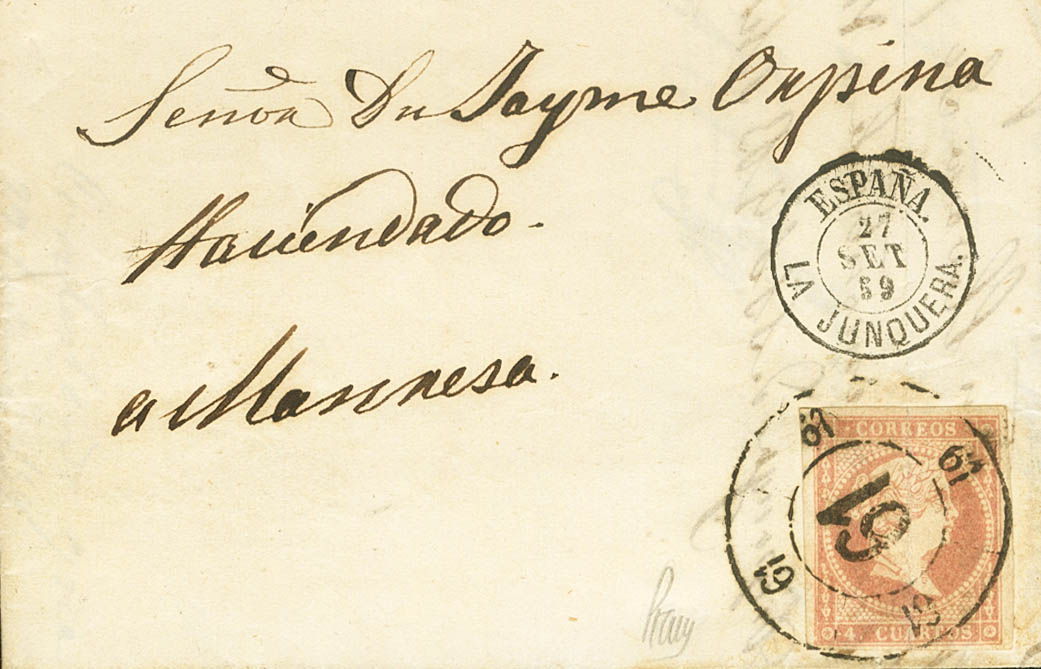 Señor Dn Jayme Orpina
Haciendado.
a Manresa.
ESPAÑA.
27
SET
59
LA JUNQUERA.
CORREOS
4 CUARTOS